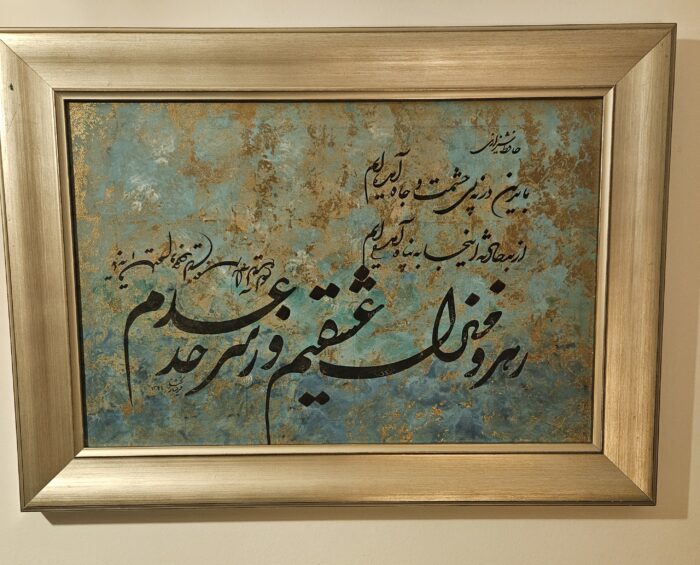 حافظ شیرازی
ما بدین در نه پی حشمت و جاه آمده ایم
از بد حادثه اینجا به پناه آمده ایم
رهرو منزل عشقیم و ز سر حد عدم